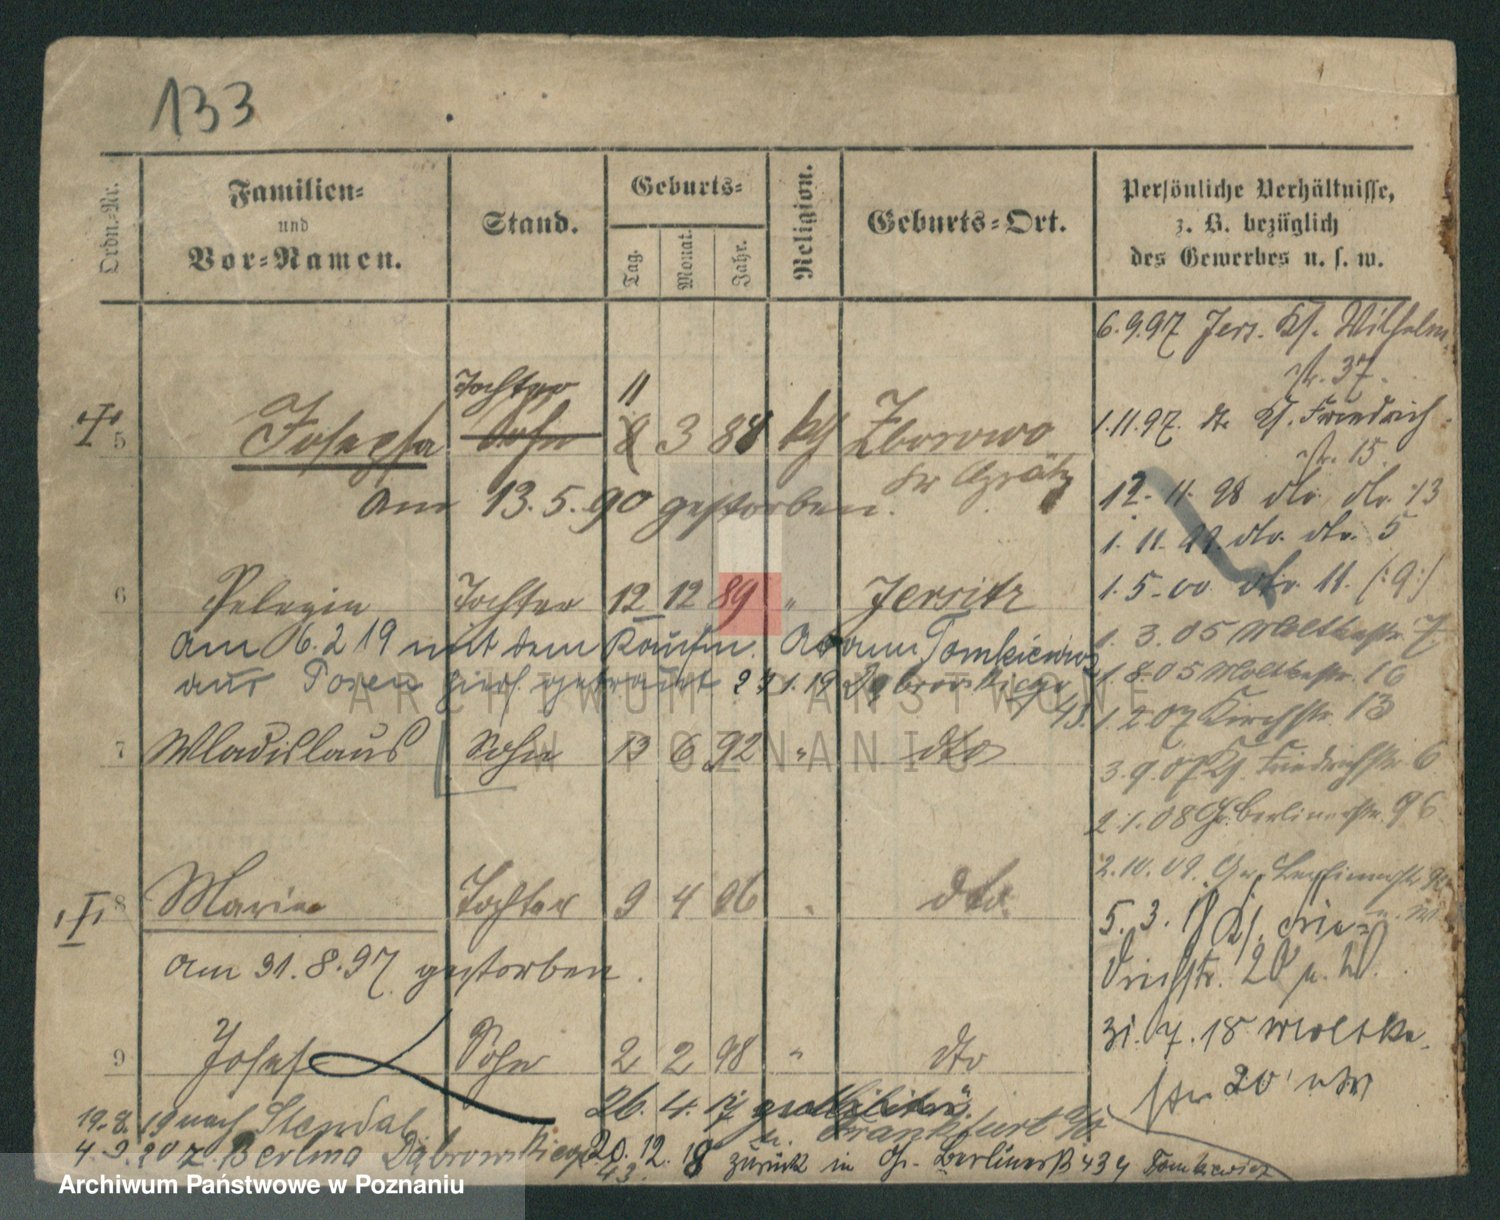 133
Ordn.-Nr.
Familien-
und
Vor-Namen.
Stand.
Geburts-
Tag.
Monat.
Jahr.
Religion.
Geburts-Ort.
Persönliche Verhältnisse,
z. B. bezüglich
des Gewerbes u. s. w.
6.9.97 Jers. Ks. Wilhelm
str. 37.
1.11.97. dt. Ks. Friedrich
str. 15.
12. 11. 98 dto. dto. 13
1. 11. 99. dto. dto. 5
1. 5. 00 dto. 11. (:9:)
1. 3. 05 Moltkestr. 7
1. 8. 05 Moltkestr. 16
1. 2. 07 Kirchstr. 13
3. 9. 07 Ks. Friedrichstr. 6
2. 1. 08 Gr. Berlinerstr. 96
2. 10. 09. Gr. Berlinerstr. 90
5. 3. 18 Ks. Frie-
drichstr. 20
31. 7. 18 Moltke-
str. 20
Tochter 11
5 Josepha Sohn 8 3 88 kth Zborowo
Kr Grätz
am 13. 5. 90 gestorben.
6 Pelagia Tochter 12 12 89 " Jersitz
am 6. 2 19 mit dem Kaufm. Adam Tomkiewicz
aus Posen hier getraut 1. 19 Dąbrowskiego
43.
7 Wladislaus Sohn 13 6 92 " dto
8 Marie Tochter 9 4 96 " dto.
am 31. 8. 97 gestorben.
9 Josef Sohn 2 2 98 " dto
26. 4. 17 z. Militär
n. Frankfurt a/O
19. 8. 19 nach Stendal
4. 9. 20 z Berlina Dąbrowskiego 43.
20. 12. 18 zurück in Gr. Berlinerstr 43 Tomkiewicz
ARCHIWUM PAŃSTWOWE
W POZNANIU
Archiwum Państwowe w Poznaniu